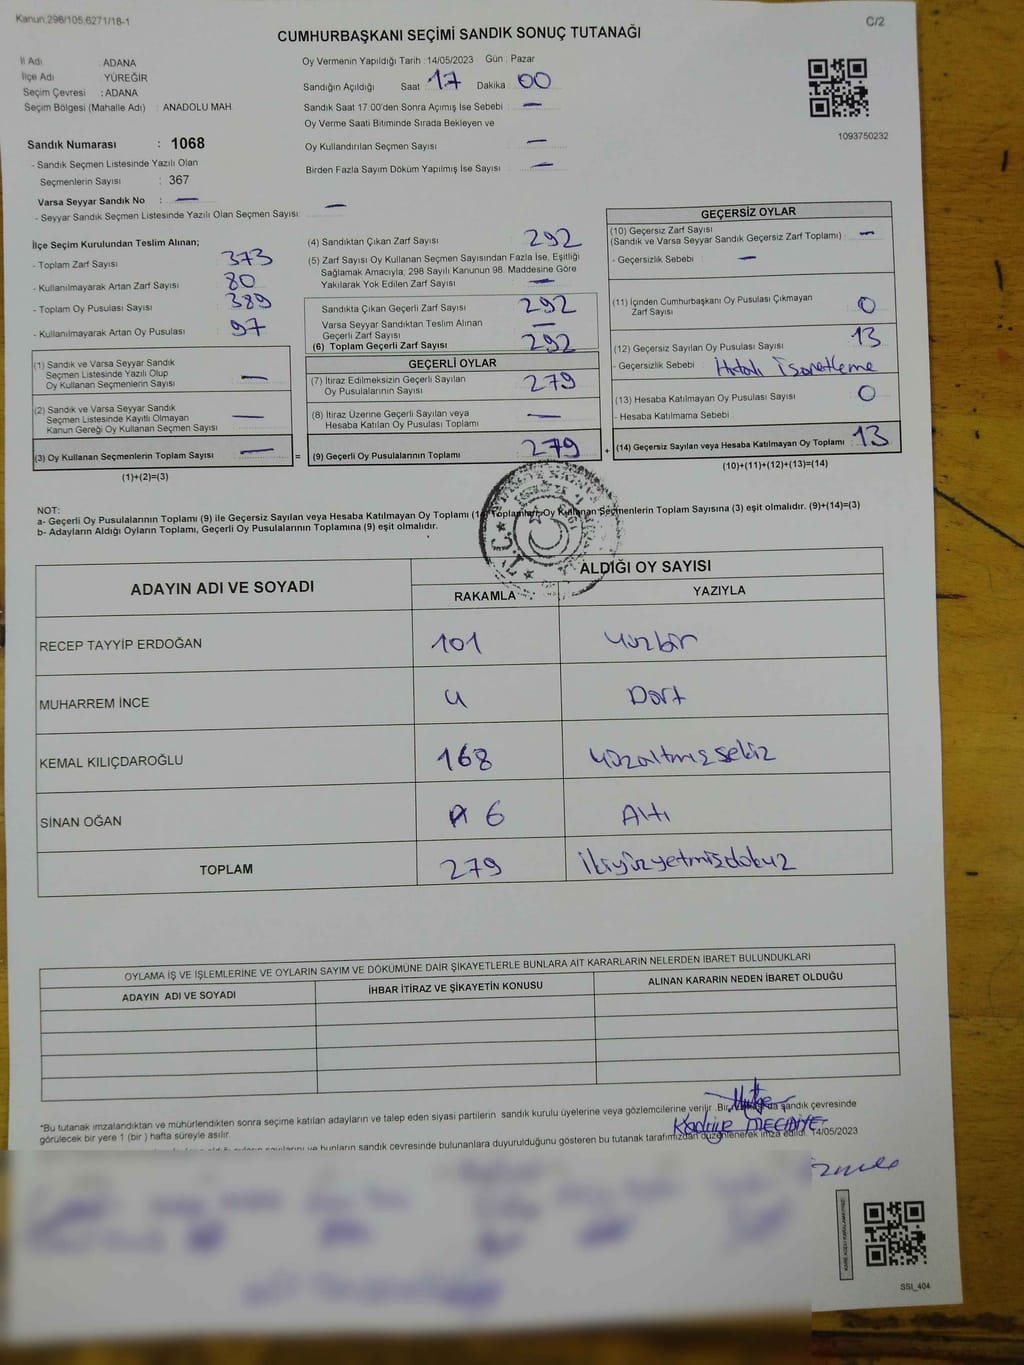 Kanun.298/105,6271/18-1
C/2
CUMHURBAŞKANI SEÇİMİ SANDIK SONUÇ TUTANAĞI
İl Adı : ADANA
İlçe Adı : YÜREĞİR
Seçim Çevresi : ADANA
Seçim Bölgesi (Mahalle Adı) : ANADOLU MAH.
Oy Vermenin Yapıldığı Tarih : 14/05/2023 Gün : Pazar
Sandığın Açıldığı Saat : 17 Dakika : 00
Sandık Saat 17:00'den Sonra Açımış İse Sebebi : —
Oy Verme Saati Bitiminde Sırada Bekleyen ve
Oy Kullandırılan Seçmen Sayısı : —
Birden Fazla Sayım Döküm Yapılmış İse Sayısı : —
1093750232
Sandık Numarası : 1068
- Sandık Seçmen Listesinde Yazılı Olan
Seçmenlerin Sayısı : 367
Varsa Seyyar Sandık No : —
- Seyyar Sandık Seçmen Listesinde Yazılı Olan Seçmen Sayısı: —
İlçe Seçim Kurulundan Teslim Alınan;
- Toplam Zarf Sayısı : 373
- Kullanılmayarak Artan Zarf Sayısı : 80
- Toplam Oy Pusulası Sayısı : 389
- Kullanılmayarak Artan Oy Pusulası : 97
(1) Sandık ve Varsa Seyyar Sandık
Seçmen Listesinde Yazılı Olup
Oy Kullanan Seçmenlerin Sayısı : —
(2) Sandık ve Varsa Seyyar Sandık
Seçmen Listesinde Kayıtlı Olmayan
Kanun Gereği Oy Kullanan Seçmen Sayısı : —
(3) Oy Kullanan Seçmenlerin Toplam Sayısı : —
(1)+(2)=(3)
(4) Sandıktan Çıkan Zarf Sayısı : 292
(5) Zarf Sayısı Oy Kullanan Seçmen Sayısından Fazla İse, Eşitliği
Sağlamak Amacıyla, 298 Sayılı Kanunun 98. Maddesine Göre
Yakılarak Yok Edilen Zarf Sayısı : —
Sandıkta Çıkan Geçerli Zarf Sayısı : 292
Varsa Seyyar Sandıktan Teslim Alınan
Geçerli Zarf Sayısı : —
(6) Toplam Geçerli Zarf Sayısı : 292
GEÇERLİ OYLAR
(7) İtiraz Edilmeksizin Geçerli Sayılan
Oy Pusulalarının Sayısı : 279
(8) İtiraz Üzerine Geçerli Sayılan veya
Hesaba Katılan Oy Pusulası Toplamı : —
= (9) Geçerli Oy Pusulalarının Toplamı : 279
GEÇERSİZ OYLAR
(10) Geçersiz Zarf Sayısı
(Sandık ve Varsa Seyyar Sandık Geçersiz Zarf Toplamı) : —
- Geçersizlik Sebebi : —
(11) İçinden Cumhurbaşkanı Oy Pusulası Çıkmayan
Zarf Sayısı : 0
(12) Geçersiz Sayılan Oy Pusulası Sayısı : 13
- Geçersizlik Sebebi : Hatalı İşaretleme
(13) Hesaba Katılmayan Oy Pusulası Sayısı : 0
- Hesaba Katılmama Sebebi :
+ (14) Geçersiz Sayılan veya Hesaba Katılmayan Oy Toplamı : 13
(10)+(11)+(12)+(13)=(14)
NOT:
a- Geçerli Oy Pusulalarının Toplamı (9) ile Geçersiz Sayılan veya Hesaba Katılmayan Oy Toplamı (14) Toplamları Oy Kullanan Seçmenlerin Toplam Sayısına (3) eşit olmalıdır. (9)+(14)=(3)
b- Adayların Aldığı Oyların Toplamı, Geçerli Oy Pusulalarının Toplamına (9) eşit olmalıdır.
ADAYIN ADI VE SOYADI ALDIĞI OY SAYISI
RAKAMLA YAZIYLA
RECEP TAYYİP ERDOĞAN 101 Yüzbir
MUHARREM İNCE 4 Dört
KEMAL KILIÇDAROĞLU 168 Yüzaltmışsekiz
SİNAN OĞAN 6 Altı
TOPLAM 279 İkiyüzyetmişdokuz
OYLAMA İŞ VE İŞLEMLERİNE VE OYLARIN SAYIM VE DÖKÜMÜNE DAİR ŞİKAYETLERLE BUNLARA AİT KARARLARIN NELERDEN İBARET BULUNDUKLARI
ADAYIN ADI VE SOYADI İHBAR İTİRAZ VE ŞİKAYETİN KONUSU ALINAN KARARIN NEDEN İBARET OLDUĞU
*Bu tutanak imzalandıktan ve mühürlendikten sonra seçime katılan adayların ve talep eden siyasi partilerin sandık kurulu üyelerine veya gözlemcilerine verilir. Bir sandık çevresinde
görülecek bir yere 1 (bir ) hafta süreyle asılır.
bunların sandık çevresinde bulunanlara duyurulduğunu gösteren bu tutanak tarafımızdan düzenlenerek imza edildi. 14/05/2023
Kadriye MECİDİYE
SSİ_404